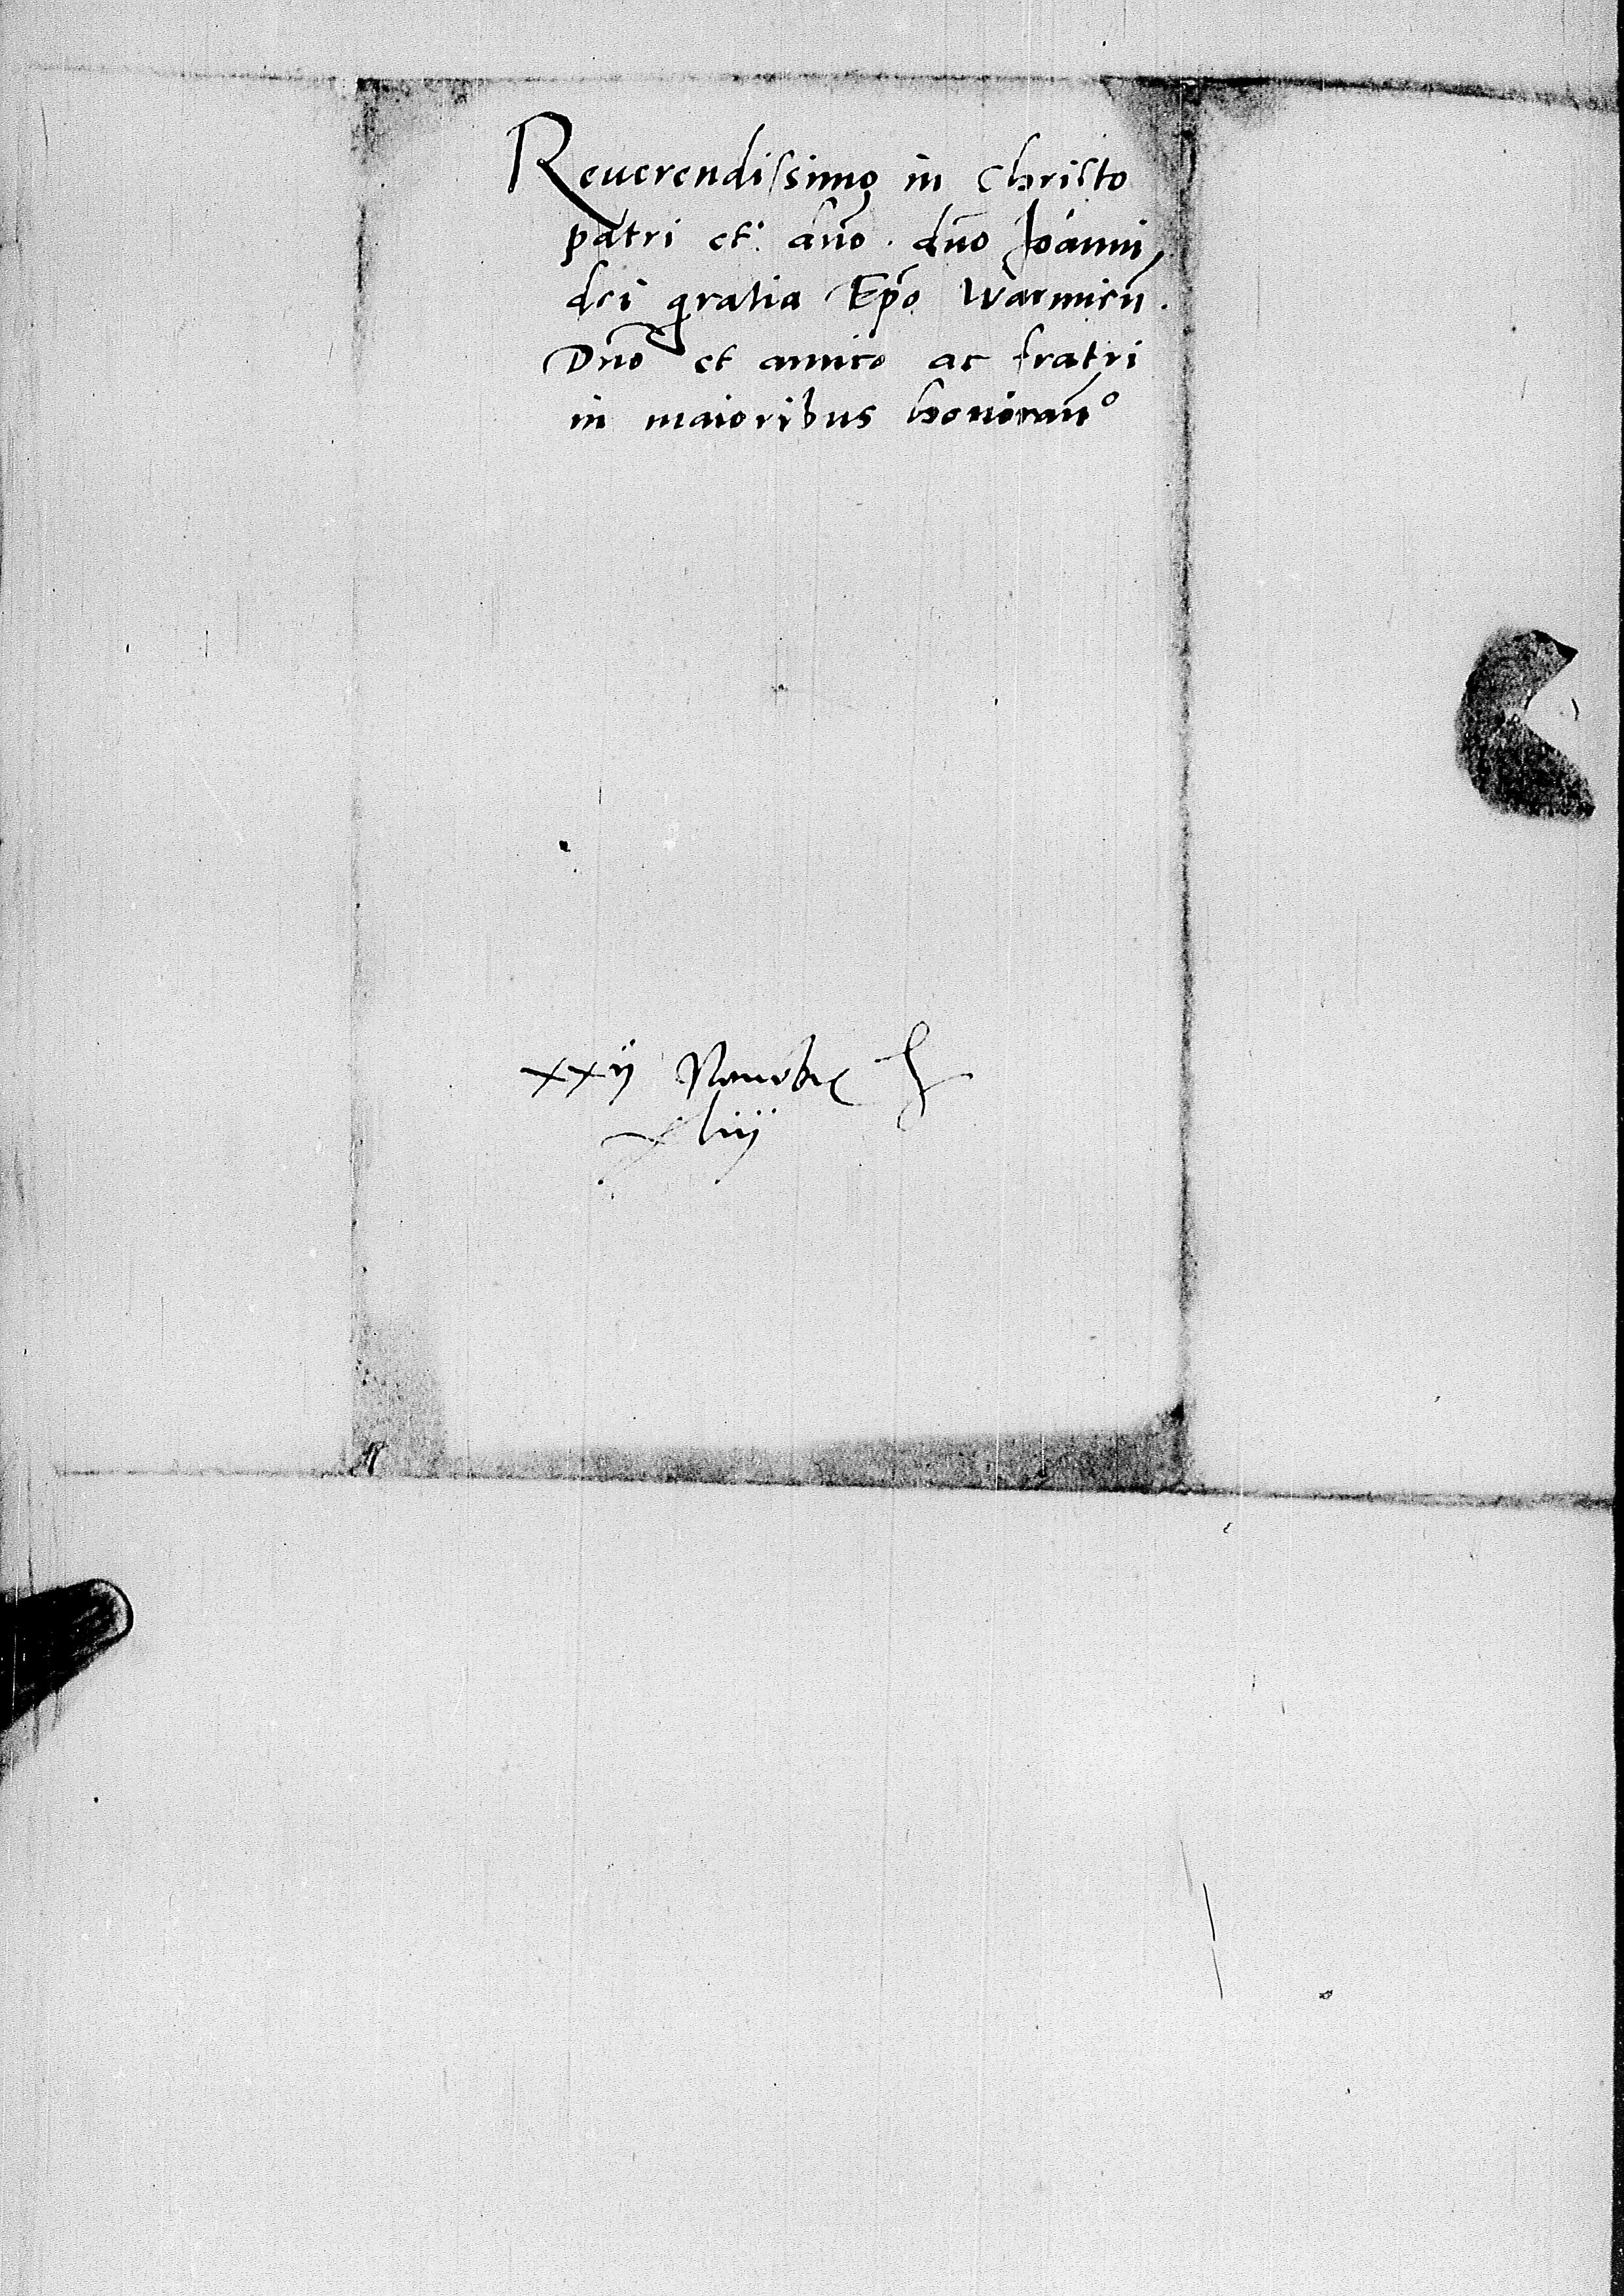 Reuerendissimo in Christo
patri et dn̄o . dn̄o Joanni
dei gratia Ep̄o Warmień .
Dn̄o et amico ac fratri
in maioribus honoran̄o
xxij Nouebr
xliij